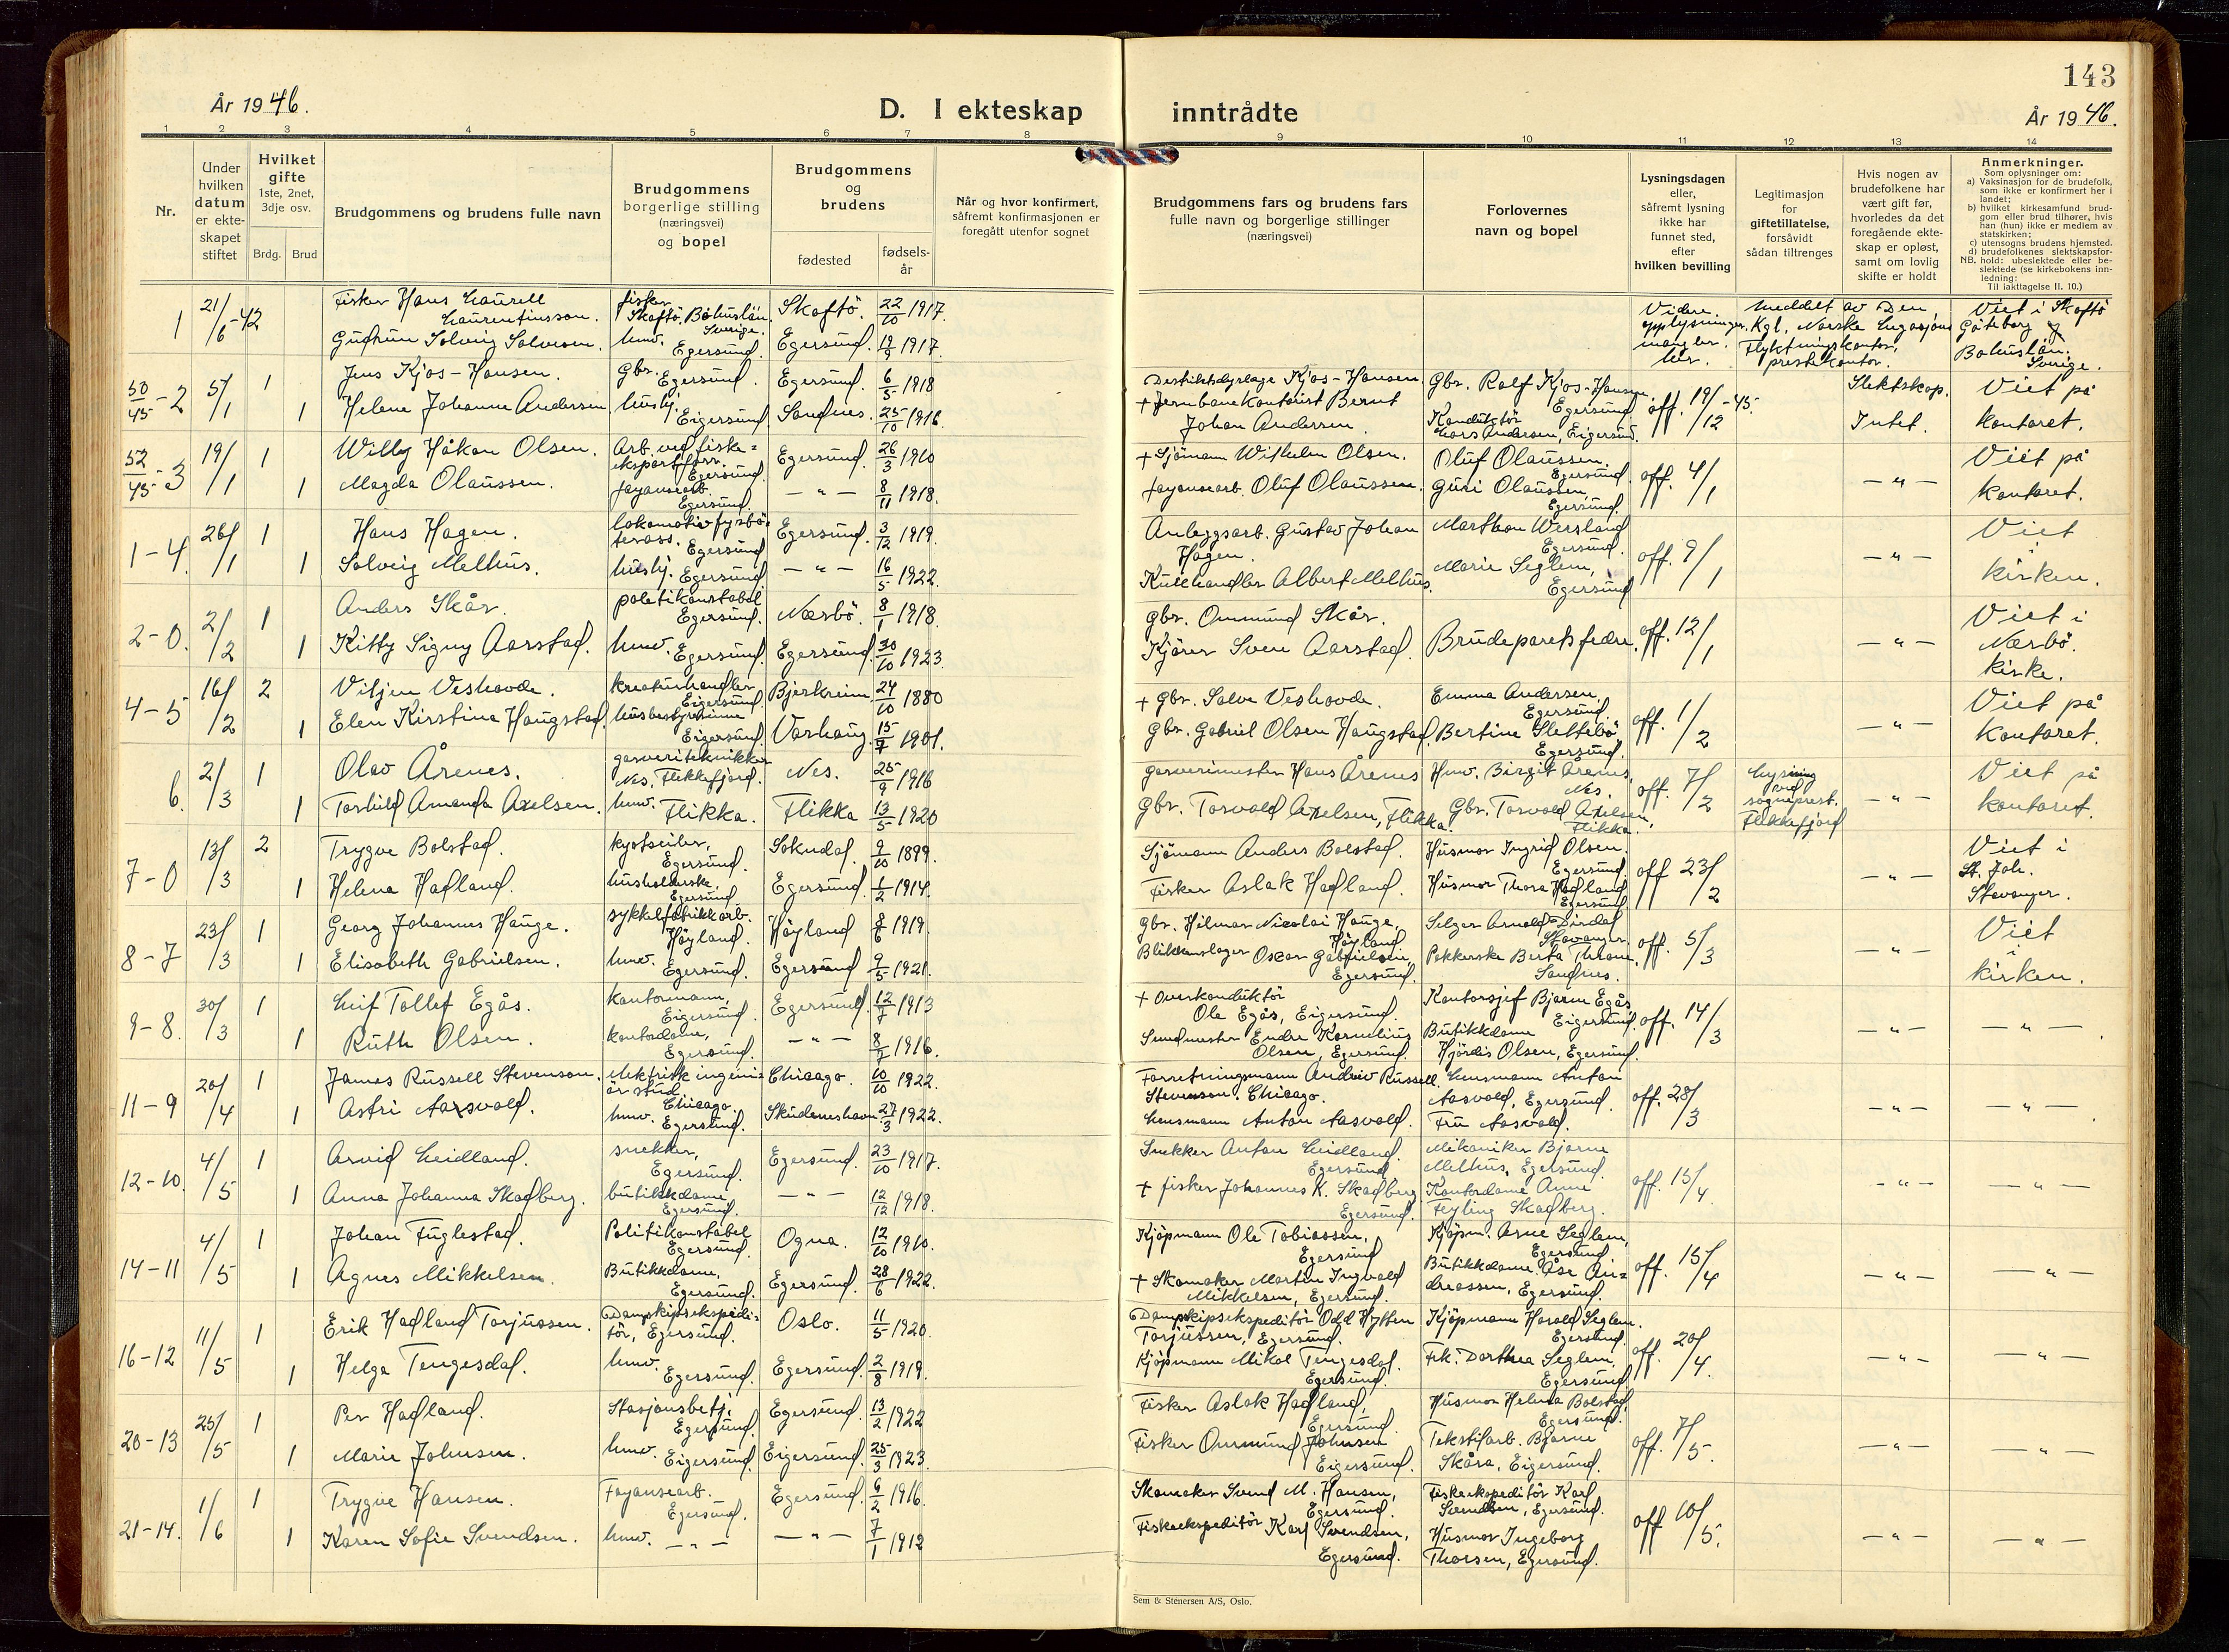 143
År 1946.
D. I ekteskap inntrådte
År 1946.
1 2 3 4 5 6 7 8 9 10 11 12 13 14
Nr.
Under hvilken datum er ekteskapet stiftet
Hvilket gifte
1ste, 2net, 3dje osv.
Brdg. Brud
Brudgommens og brudens fulle navn
Brudgommens borgerlige stilling (næringsvei) og bopel
Brudgommens og brudens
fødested
fødselsår
Når og hvor konfirmert, såfremt konfirmasjonen er foregått utenfor sognet
Brudgommens fars og brudens fars fulle navn og borgerlige stillinger (næringsvei)
Forlovernes navn og bopel
Lysningsdagen eller, såfremt lysning ikke har funnet sted, efter hvilken bevilling
Legitimasjon for giftetillatelse, forsåvidt sådan tiltrenges
Hvis nogen av brudefolkene har vært gift før, hvorledes da det foregående ekteskap er opløst, samt om lovlig skifte er holdt
Anmerkninger.
Som oplysninger om:
a) Vaksinasjon for de brudefolk, som ikke er konfirmert her i landet;
b) hvilket kirkesamfund brudgom eller brud tilhører, hvis han (hun) ikke er medlem av statskirken;
c) utensogns brudens hjemsted.
d) brudefolkenes slektskapsforhold: ubeslektede eller beslektede (se kirkebokens innledning:
NB.
Til iakttagelse II. 10.)
1 21/6-42 Fisker Hans Laurell Laurentinsson. fisker Skaftö, Bohuslän Sverige. Skaftö. 22/10 1917.
Gudrun Solveig Salvesen. hmv. Egersund. Egersund. 19/9 1917.
Videre opplysninger mangler her. Meddelt av Den Kgl. Norske Legasjons Flyktningskontor, prestekontor. Viet i Skaftö Göteborg Bohuslän. Sverige.
50/45-2 5/1 1 Jens Kjos-Hansen. Gbr. Egersund. Egersund. 6/5 1918
1 Helene Johanne Andersen. hushj. Eigersund. Sandnes. 25/10 1916.
Destriktsdyrlæge Kjos-Hansen. Gbr. Rolf Kjos-Hansen Egersund. off. 19/12-45. Slektskap. Viet på
+ Jernbanekontorist Bernt Johan Andersen. Konduktör Lars Andersen, Eigersund. Intet. kontoret.
52/45-3 19/1 1 Willy Håkon Olsen. Arb. ved fiskeeksportforr. Egersund. Egersund. 26/3 1910
1 Magda Olaussen. Fayansearb. Egersund. — " — 8/11 1918.
+ Sjömann Wilhelm Olsen. Oluf Olaussen. Egersund. off. 4/1 — " — Viet på
Fayansearb. Oluf Olaussen. Guri Olaussen, Egersund. kontoret.
1-4. 26/1 1 Hans Hagen. lokomotivfyrböterass. Egersund. Egersund. 3/12 1919.
1 Solveig Melhus. hushj. Egersund. — " — 16/5 1922.
Anleggsarb. Gustav Johan Hagen. Marthon Wersland Egersund. off. 9/1 — " — Viet i
Kullhandler Albert Melhus. Marie Seglem, Egersund kirken.
2-0. 2/2 1 Anders Skår. politikonstabel Egersund. Nærbö. 8/1 1918.
1 Kitty Signy Aarstad. hmv. Egersund. Egersund. 30/10 1923.
Gbr. Ommund Skår. Brudeparets fedre. off. 12/1 — " — Viet i Nærbö. kirke.
Kjörer Sven Aarstad.
4-5 16/2 2 Viljen Veshovde. kreaturhandler Eigersund. Bjerkreim 24/10 1880
1 Elen Kirstina Haugstad. husbestyrerinne Eigersund. Varhaug. 15/7 1901.
+ Gbr. Salve Veshovde. Emma Andersen. Egersund. off. 1/2 — " — Viet på
Gbr. Gabriel Olsen Haugstad. Bertine Slettebö Egersund. kontoret.
6. 2/3 1 Olav Årenes. garveritekniker Nes, Flekkefjord. Nes. 25/9 1916
1 Torhild Amanda Axelsen. hmv. Flikka. Flikka 13/5 1920
Garverimester Hans Årenes Hmv. Birgit Årenes, Nes. off. 7/2 Lysning ved sogneprest. Flekkefjord — " — Viet på
Gbr. Torvald Axelsen, Flikka. Gbr. Torvald Axelsen, Flikka. kontoret.
7-0 13/3 2 Trygve Bolstad. kystseiler, Egersund. Sokndal. 9/10 1899.
1 Helena Hadland. husholderske, Egersund. Egersund. 1/2 1914.
Sjömann Anders Bolstad. Husmor Ingrid Olsen. Egersund. off 23/2 — " — Viet i St. Joh. Stavanger.
Fisker Aslak Hadland. Husmor Thora Hadland Egersund.
8-7 23/3 1 Georg Johannes Hauge. sykkelfabrikkarb. Höyland. Höyland 8/6 1919.
1 Elisabeth Gabrielsen. hmv. Egersund. Egersund 9/5 1921.
Gbr. Hilmar Nicolai Hauge, Höyland. Selger Arnold Dirdal Stavanger. off. 5/3 — " — Viet i
Blikkenslager Oscar Gabrielsen, Egersund. Pakkerske Berta Thime, Sandnes. kirken.
9-8. 30/3 1 Leif Tollef Egås. kontormann, Eigersund. Egersund 12/7 1913
1 Ruth Olsen. kontordame, Egersund. — " — 8/7 1916.
+ Overkonduktör Ole Egås, Eigersund. Kontorsjef Bjarne Egås Eigersund. off. 14/3 — " — — " —
Sundmester Endre Kornelius Olsen, Egersund. Butikkdame Hjördis Olsen, Egersund.
11-9 20/4 1 James Russell Stevenson. elektrisk ingeniörstud. Chicago. Chicago. 10/10 1922.
1 Astri Aasvold. hmv. Egersund. Skudeneshavn 27/3 1922.
Forretningsmann Andriv Russell Stevenson. Chicago. Lensmann Anton Aasvold, Egersund. off. 28/3 — " — — " —
Lensmann Anton Aasvold. Fru Aasvold.
12-10. 4/5 1 Arvid Leidland. snekker, Egersund. Egersund. 23/10 1917.
1 Anna Johanna Skadberg. butikkdame Egersund. — " — 12/12 1918.
Snekker Anton Leidland. Egersund Mekaniker Bjarne Melhus, Egersund. off. 15/4. — " — — " —
+ fisker Johannes K. Skadberg Egersund. Kontordame Anne Feyling Skadberg.
14-11 4/5 1 Johan Fuglestad. Politikonstabel Egersund. Ogna. 12/10 1910.
1 Agnes Mikkelsen. Butikkdame, Egersund. Egersund. 28/6 1922.
Kjöpmann Ole Tobiassen, Egersund Kjöpm. Arne Seglem, Egersund. off. 15/4 — " — — " —
+ Skomaker Martin Ingvald Mikkelsen, Egersund. Butikkdame Åse Andreassen, Egersund.
16-12 11/5 1 Erik Hadland Torjussen. Dampskipsekspeditör, Egersund. Oslo. 11/5 1920.
1 Helga Tengesdal. hmv. Egersund. Egersund. 2/8 1919.
Dampskipsekspeditör Odd Hytten Torjussen, Egersund. Kjöpmann Harald Seglem. Egersund. off. 20/4. — " — — " —
Kjöpmann Mikal Tengesdal. Egersund. Frk. Dorthea Seglem. Egersund
20-13 25/5 1 Per Hadland. Stasjonsbetj. Egersund. Egersund. 13/2 1922
1 Marie Johnsen. hmv. Eigersund. Eigersund. 25/3 1923.
Fisker Aslak Hadland, Egersund. Husmor Helena Bolstad, Egersund. off. 7/5. — " — — " —
Fisker Ommund Johnsen Eigersund. Tekstilarb. Bjarne Skåra, Eigersund.
21-14. 1/6 1 Trygve Hansen. Fayansearb. Egersund. Egersund. 9/2 1916.
1 Karen Sofie Svendsen. hmv. — " — — " — 7/1 1912
Skomaker Svend M. Hansen, Egersund. Fiskeekspeditör Karl Svendsen, Egersund. off 10/5. — " — — " —
Fiskeekspeditör Karl Svendsen, Egersund. Husmor Ingeborg Thorsen, Egersund.
Sem & Stenersen A/S, Oslo.